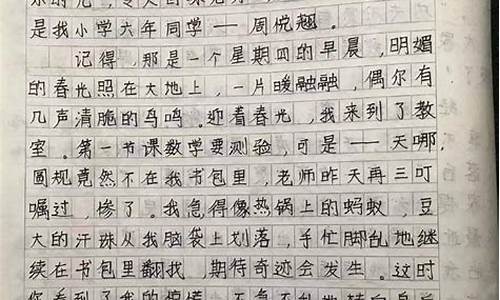 是我小学六年同学——周悦翘。
记得,那是一个星期四的早晨,明媚
的春光照在大地上,一片暖融融,偶尔有
几声清脆的鸟鸣。迎着春光,我来到了教
室。第一节课数学要测验,可是——天哪,
圆规竟然不在我书包里,老师昨天再三叮
嘱过,惨了。我急得像热锅上的蚂蚁,豆
大的汗珠从我脑袋上划落,手忙脚乱地继
续在书包里翻找,期待奇迹会发生。这时
你看到了我的惊慌,不急不乱地转向自己